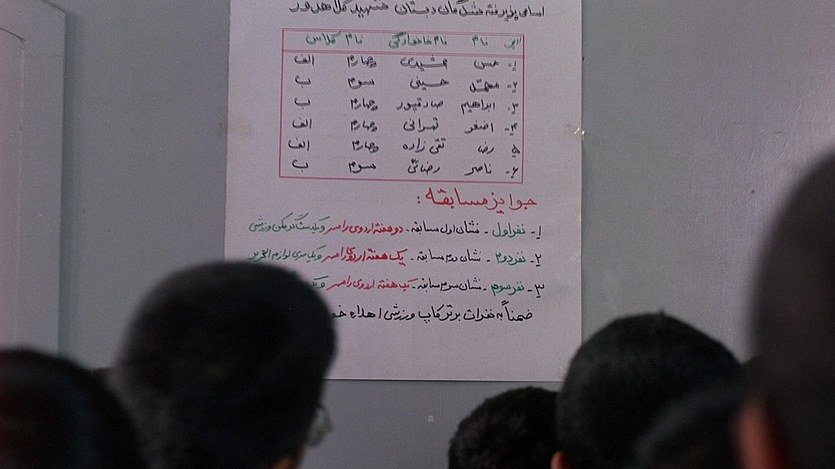 اسامی پذیرفته شدگان دبستان شهید کلاهدوز
نام نام خانوادگی نام کلاس
۱- حسن جمشیدی چهارم الف
۲- محمد حسینی سوم ب
۳- ابراهیم صادقپور چهارم ب
۴- اصغر تهرانی چهارم الف
۵- رضا تقی زاده چهارم الف
۶- ناصر رضائی سوم ب
جوایز مسابقه:
۱- نفر اول - نشان اول مسابقه - دو هفته اردوی رامسر و یکدست گرمکن ورزشی
۲- نفر دوم - نشان دوم مسابقه - یک هفته اردوی رامسر و یک سری لوازم التحریر
۳- نفر سوم - نشان سوم مسابقه - یک هفته اردوی رامسر
ضمناً به نفرات برتر کاپ ورزشی اهداء